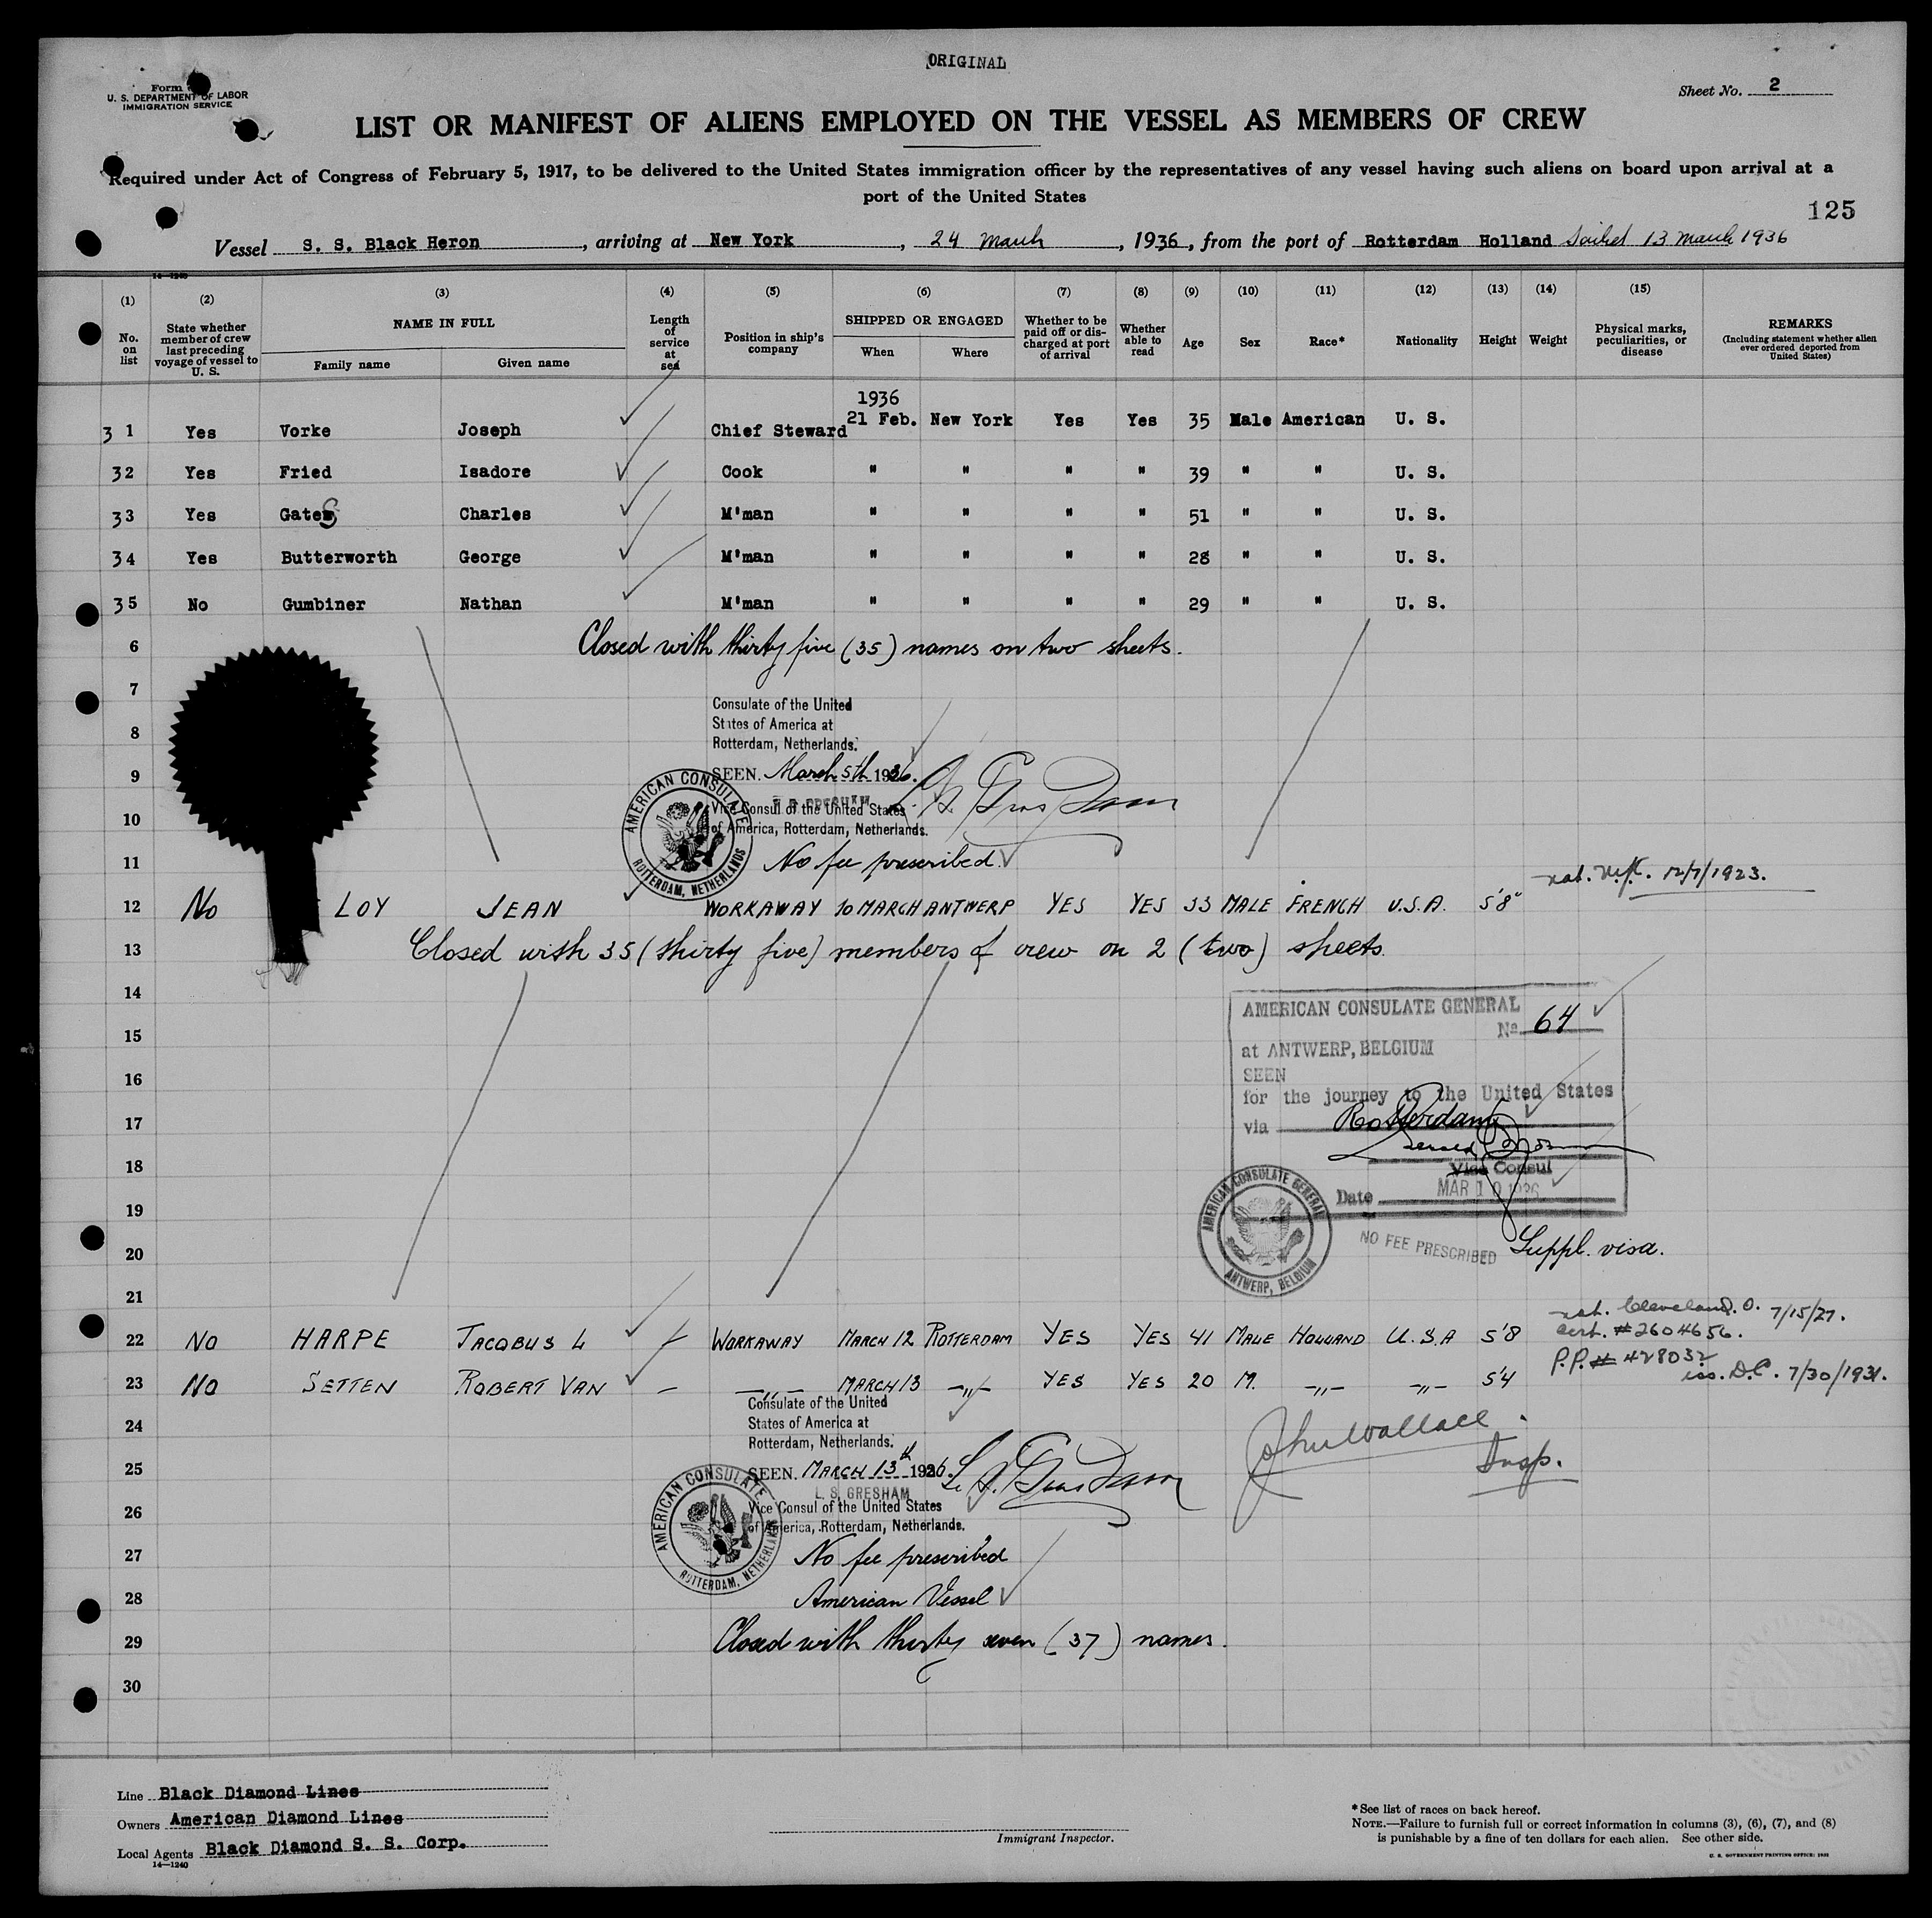 ORIGINAL
Form
U. S. DEPARTMENT OF LABOR
IMMIGRATION SERVICE
Sheet No. 2
LIST OR MANIFEST OF ALIENS EMPLOYED ON THE VESSEL AS MEMBERS OF CREW
Required under Act of Congress of February 5, 1917, to be delivered to the United States immigration officer by the representatives of any vessel having such aliens on board upon arrival at a
port of the United States
125
Vessel S. S. Black Heron, arriving at New York, 24 March, 1936, from the port of Rotterdam Holland Sailed 13 March 1936
14—1240
(1) (2) (3) (4) (5) (6) (7) (8) (9) (10) (11) (12) (13) (14) (15)
No. on list State whether member of crew last preceding voyage of vessel to U. S. NAME IN FULL Family name Given name Length of service at sea Position in ship's company SHIPPED OR ENGAGED When Where Whether to be paid off or discharged at port of arrival Whether able to read Age Sex Race* Nationality Height Weight Physical marks, peculiarities, or disease REMARKS (Including statement whether alien ever ordered deported from United States)
1936
3 1 Yes Vorke Joseph Chief Steward 21 Feb. New York Yes Yes 35 Male American U. S.
32 Yes Fried Isadore Cook " " " " 39 " " U. S.
33 Yes Gates Charles M'man " " " " 51 " " U. S.
34 Yes Butterworth George M'man " " " " 28 " " U. S.
35 No Gumbiner Nathan M'man " " " " 29 " " U. S.
6 Closed with thirty five (35) names on two sheets.
7
Consulate of the United
States of America at
8
Rotterdam, Netherlands.
9 SEEN. March 5th 1936.
Vice Consul of the United States
10 of America, Rotterdam, Netherlands.
AMERICAN CONSULATE ROTTERDAM, NETHERLANDS
11 No fee prescribed
nat. 12/7/1923.
12 No LOY JEAN WORKAWAY 10 MARCH ANTWERP YES YES 33 MALE FRENCH U.S.A. 5'8"
13 Closed with 35 (thirty five) members of crew on 2 (two) sheets.
14
AMERICAN CONSULATE GENERAL
15 No. 64
at ANTWERP, BELGIUM
16 SEEN
for the journey to the United States
17 via Rotterdam
18 Vice Consul
Date MAR 10 1936
19
AMERICAN CONSULATE GENERAL ANTWERP, BELGIUM
20 NO FEE PRESCRIBED Suppl. visa.
21
nat. Cleveland. O. 7/15/27.
cert. #2604656.
22 No HARPE JACOBUS L WORKAWAY MARCH 12 ROTTERDAM YES YES 41 MALE HOLLAND U.S.A 5'8
P.P. # 428032
iss. D.C. 7/30/1931.
23 No SETTEN ROBERT VAN — —"— MARCH 13 —"— YES YES 20 M. —"— —"— 5'4
Consulate of the United
24 States of America at
Rotterdam, Netherlands.
John Wallace.
Insp.
25 SEEN. MARCH 13th 1936.
L. S. GRESHAM
26 Vice Consul of the United States
of America, Rotterdam, Netherlands.
AMERICAN CONSULATE ROTTERDAM, NETHERLANDS
27 No fee prescribed
28 American Vessel
29 Closed with thirty seven (37) names.
30
Line Black Diamond Lines
Owners American Diamond Lines
Local Agents Black Diamond S. S. Corp.
14—1240
Immigrant Inspector.
*See list of races on back hereof.
NOTE.—Failure to furnish full or correct information in columns (3), (6), (7), and (8)
is punishable by a fine of ten dollars for each alien. See other side.